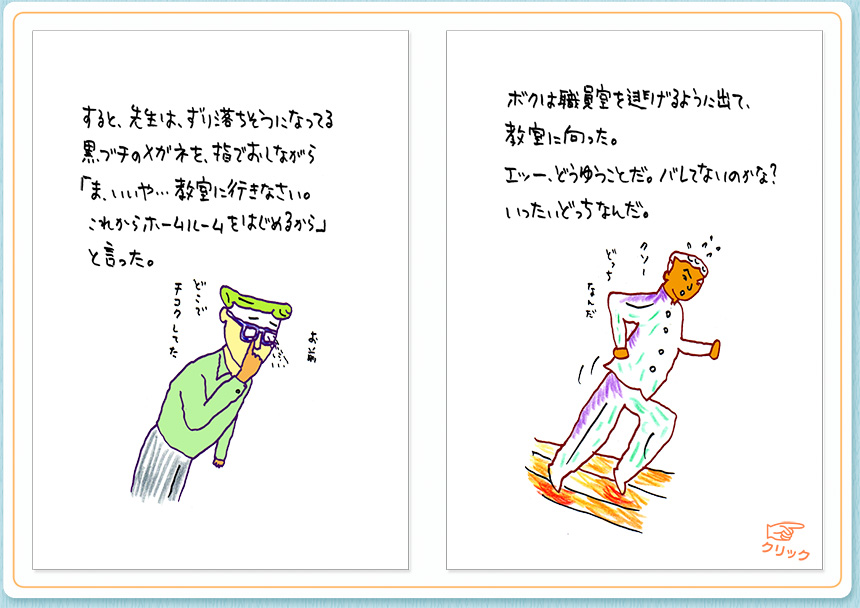 すると、先生は、ずり落ちそうになってる
黒ブチのメガネを、指でおしながら
「ま、いいや…教室に行きなさい。
これからホームルームをはじめるから」
と言った。
お前
どこで
チコクしてた
ボクは職員室を逃げるように出て、
教室に向った。
エッー、どうゆうことだ。バレてないのかな?
いったいどっちなんだ。
クソー
どっち
なんだ
クリック